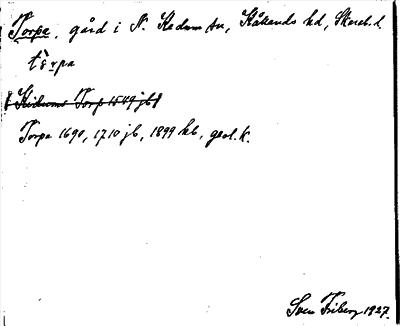 Torpa, gård i N. Kedum sn, Kåkinds hd, Skarab. l.
tɷ̀rpa
[Kedums Torp 1549 jb]
Torpa 1690, 1710 jb, 1899 kb, geol. k.
Sven Friberg 1927.